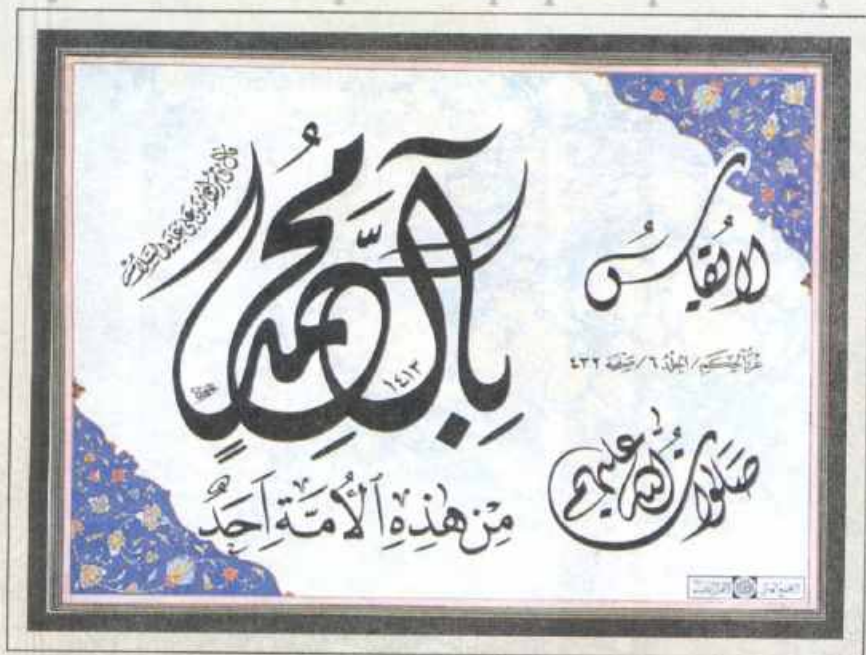 قال أمير المؤمنين علي عليه السلام
لا يُقاسُ
بِآلِ مُحَمَّدٍ
صَلَواتُ اللّٰهِ عليهم
مِنْ هٰذِهِ ٱلْأُمَّةِ اَحَدٌ
غرر الحكم / المجلد ٦ / صفحه ٤٣٢
١٤١٣